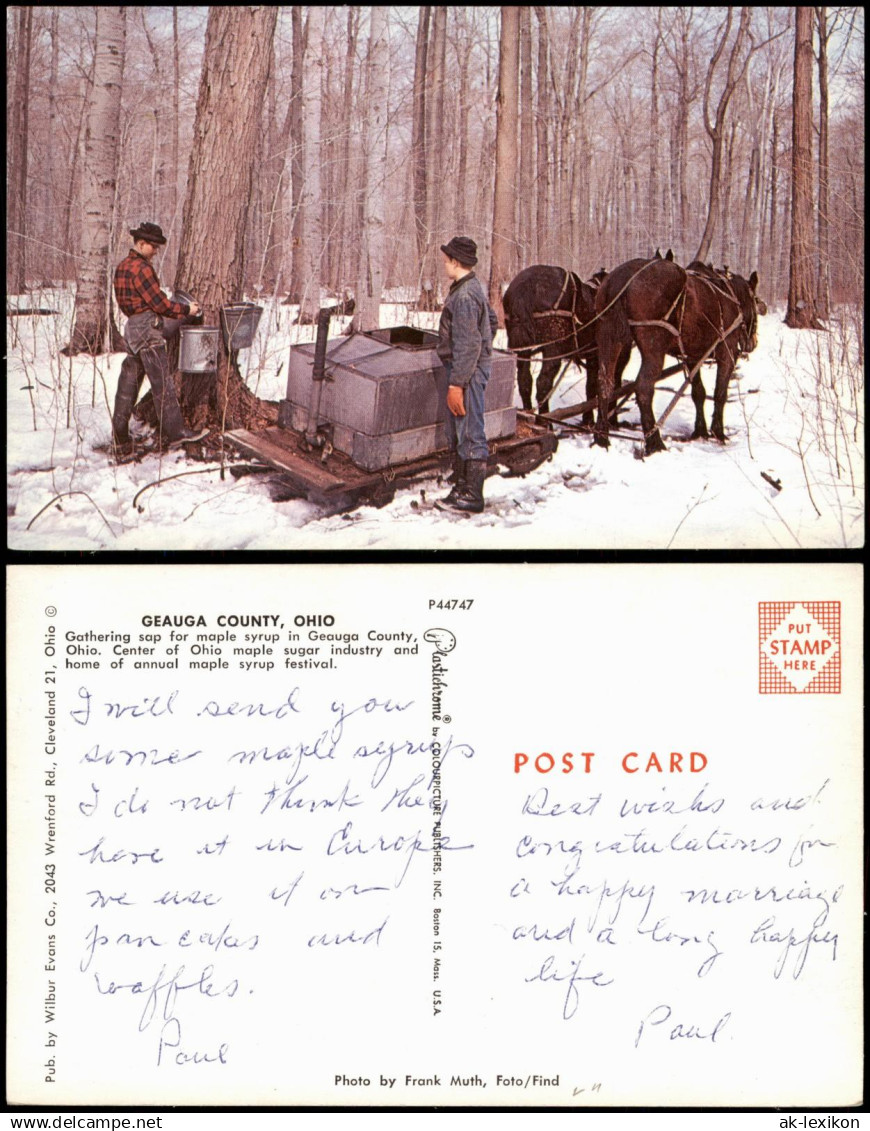 GEAUGA COUNTY, OHIO
Gathering sap for maple syrup in Geauga County,
Ohio. Center of Ohio maple sugar industry and
home of annual maple syrup festival.
I will send you
some maple syrups
I do not think they
have it in Europe
we use it on
pancakes and
waffles.
Paul
Pub. by Wilbur Evans Co., 2043 Wrenford Rd., Cleveland 21, Ohio ©
P44747
Plastichrome® by COLOURPICTURE PUBLISHERS, INC. Boston 15, Mass. U.S.A.
PUT
STAMP
HERE
POST CARD
Best wishs and
congratulations for
a happy marriage
and a long happy
life
Paul.
Photo by Frank Muth, Foto/Find
ak-lexikon